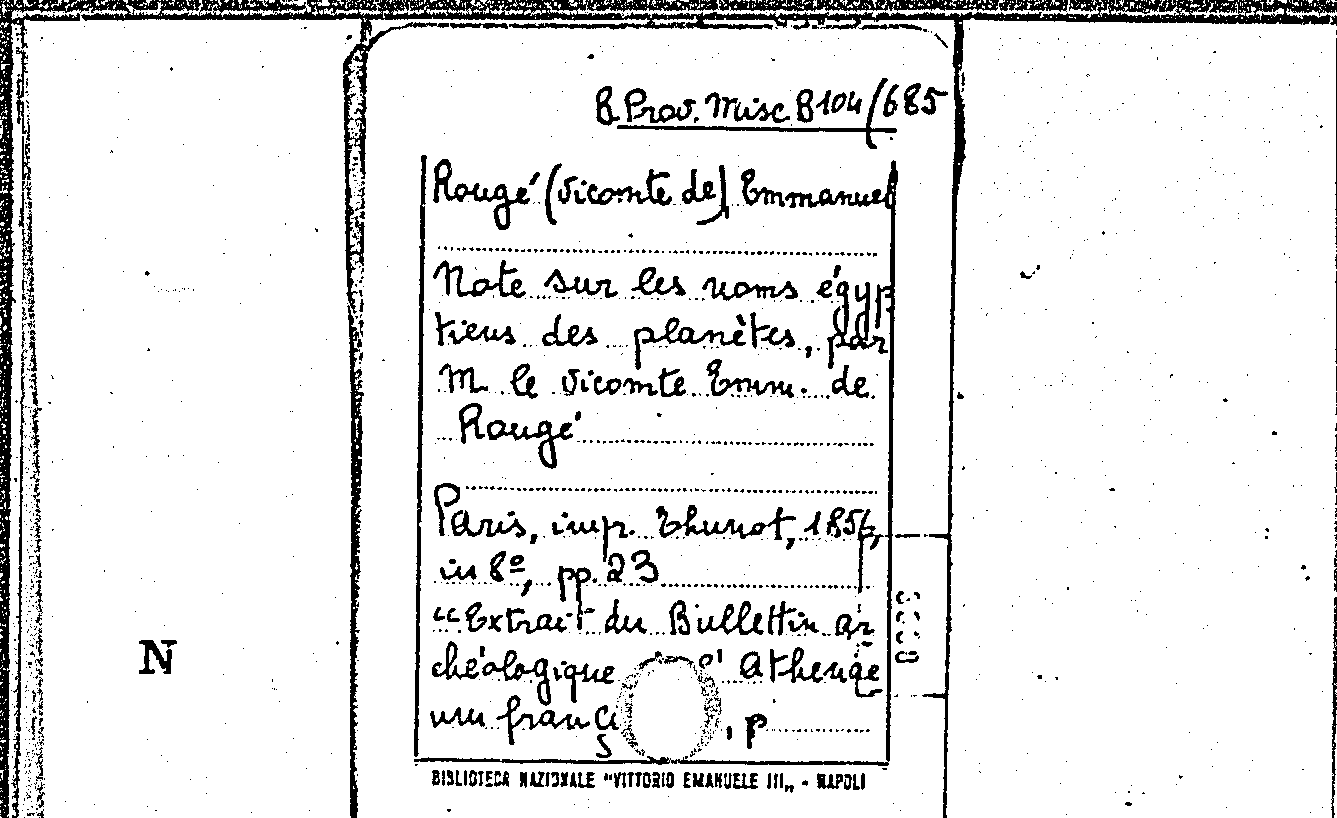 B. Prov. Misc B 104/685
Rougé (Vicomte de) Emmanuel
Note sur les noms égyp
tiens des planètes, par
M. le Vicomte Emm. de
Rougé
Paris, imp. Thunot, 1856,
in 8º, pp. 23
"Extrait du Bullettin ar
chéologique l' Athenae
um franç , p
BIBLIOTECA NAZIONALE "VITTORIO EMANUELE III„ - NAPOLI
N